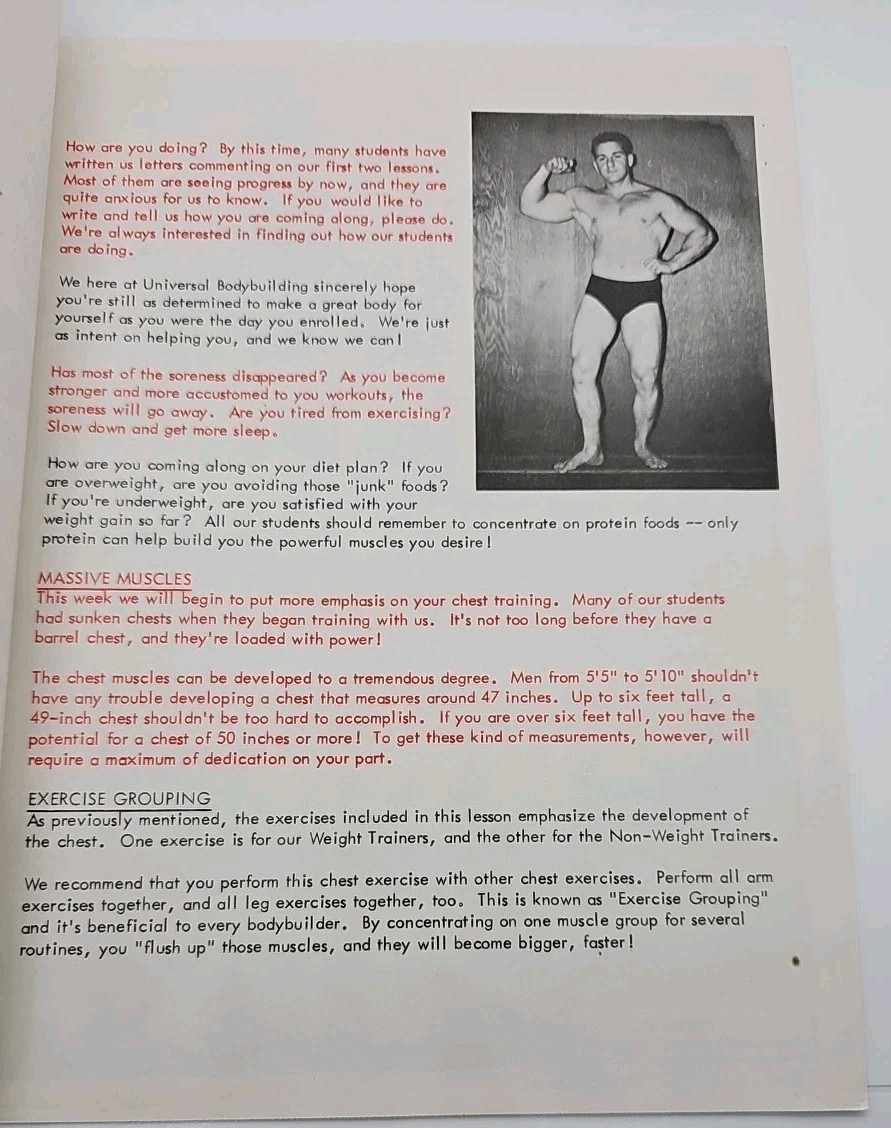 How are you doing? By this time, many students have
written us letters commenting on our first two lessons.
Most of them are seeing progress by now, and they are
quite anxious for us to know. If you would like to
write and tell us how you are coming along, please do.
We're always interested in finding out how our students
are doing.
We here at Universal Bodybuilding sincerely hope
you're still as determined to make a great body for
yourself as you were the day you enrolled. We're just
as intent on helping you, and we know we can!
Has most of the soreness disappeared? As you become
stronger and more accustomed to you workouts, the
soreness will go away. Are you tired from exercising?
Slow down and get more sleep.
How are you coming along on your diet plan? If you
are overweight, are you avoiding those "junk" foods?
If you're underweight, are you satisfied with your
weight gain so far? All our students should remember to concentrate on protein foods -- only
protein can help build you the powerful muscles you desire!
MASSIVE MUSCLES
This week we will begin to put more emphasis on your chest training. Many of our students
had sunken chests when they began training with us. It's not too long before they have a
barrel chest, and they're loaded with power!
The chest muscles can be developed to a tremendous degree. Men from 5'5" to 5'10" shouldn't
have any trouble developing a chest that measures around 47 inches. Up to six feet tall, a
49-inch chest shouldn't be too hard to accomplish. If you are over six feet tall, you have the
potential for a chest of 50 inches or more! To get these kind of measurements, however, will
require a maximum of dedication on your part.
EXERCISE GROUPING
As previously mentioned, the exercises included in this lesson emphasize the development of
the chest. One exercise is for our Weight Trainers, and the other for the Non-Weight Trainers.
We recommend that you perform this chest exercise with other chest exercises. Perform all arm
exercises together, and all leg exercises together, too. This is known as "Exercise Grouping"
and it's beneficial to every bodybuilder. By concentrating on one muscle group for several
routines, you "flush up" those muscles, and they will become bigger, faster!